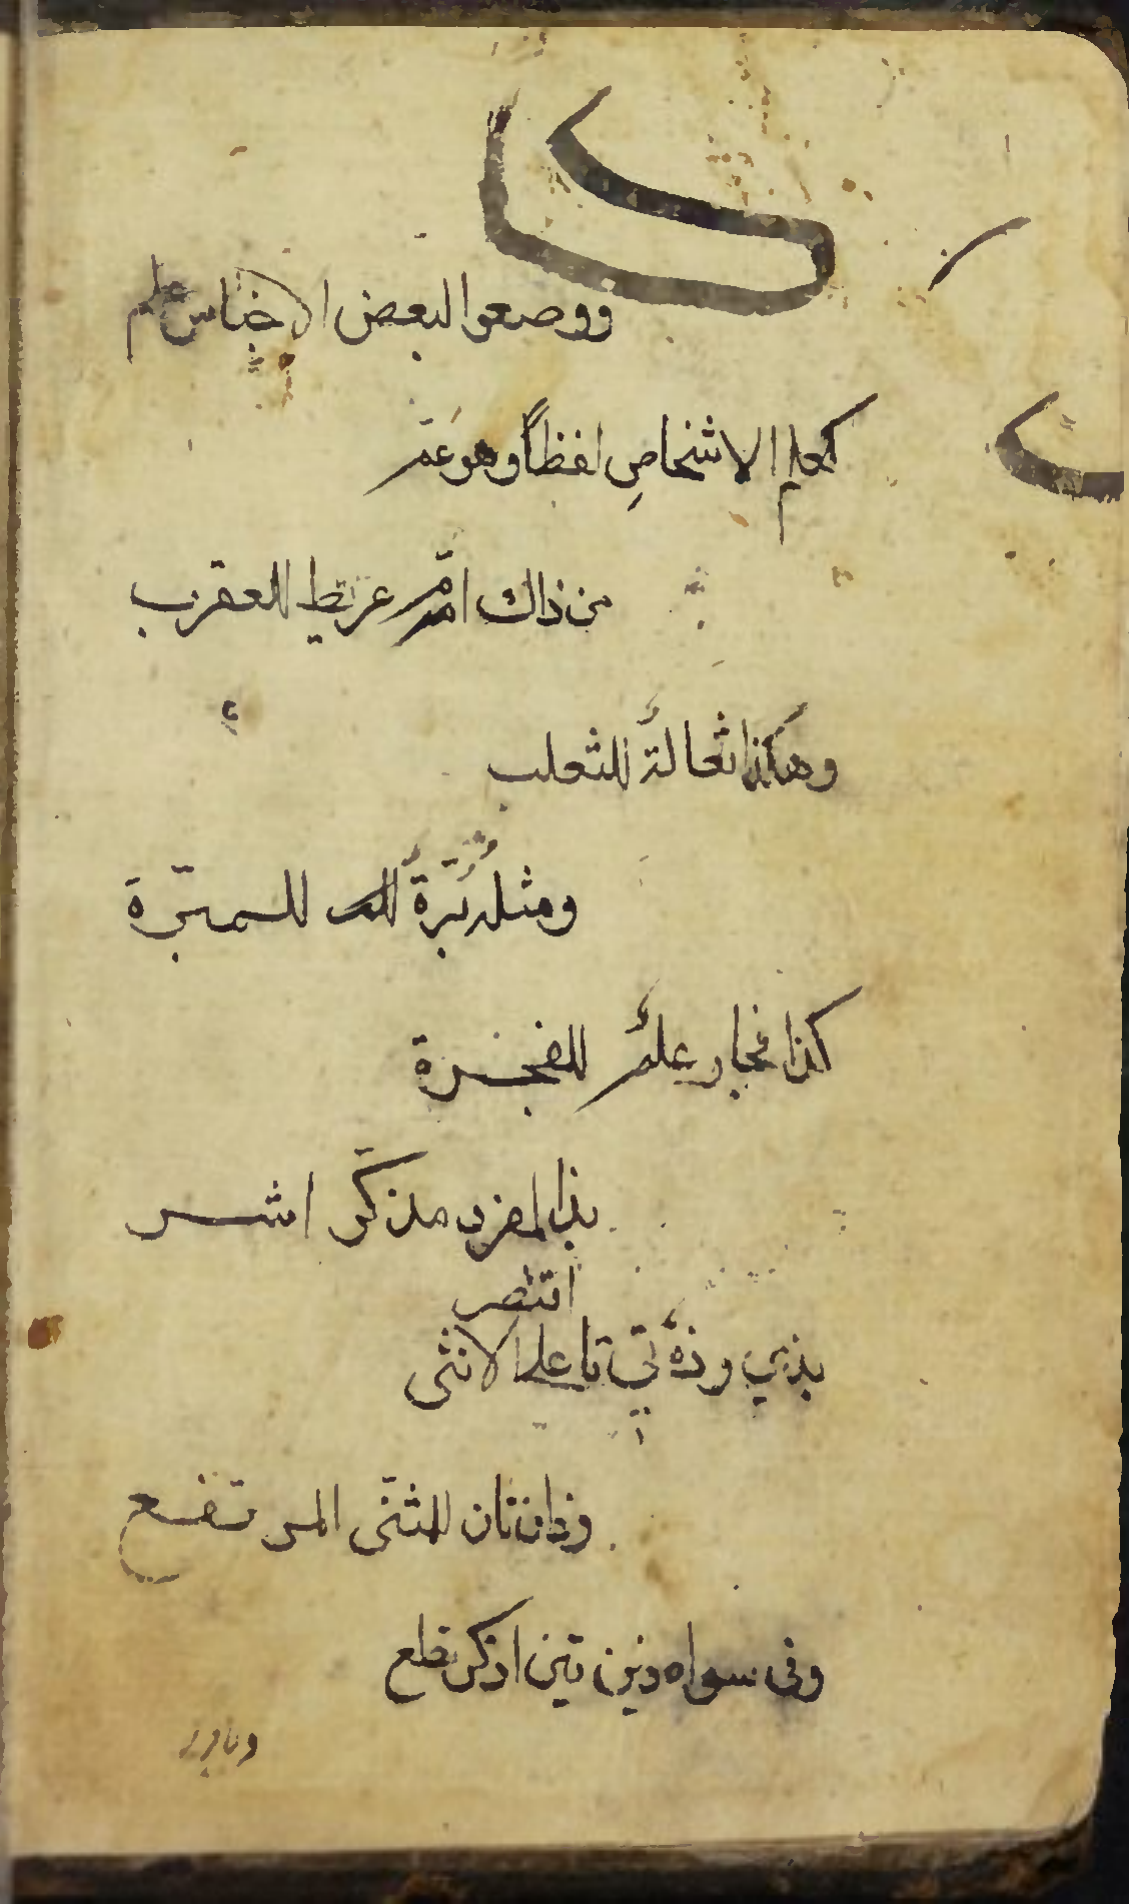 ووضعوا لبعض الاجناس علم
كعلم الاشخاص لفظاً وهو عم
من ذاك امّ عريط للعقرب
وهكذا ثعالةٌ للثعلب
ومثله بُرّةٌ للمبرّة
كذا فجار علمٌ للفجرة
بذا لمفرد مذكّر اشر
بذي وذهْ تي تا على الانثى اقتصر
وذان تان للمثنّى المرتفع
وفي سواه ذين تين اذكر تطع